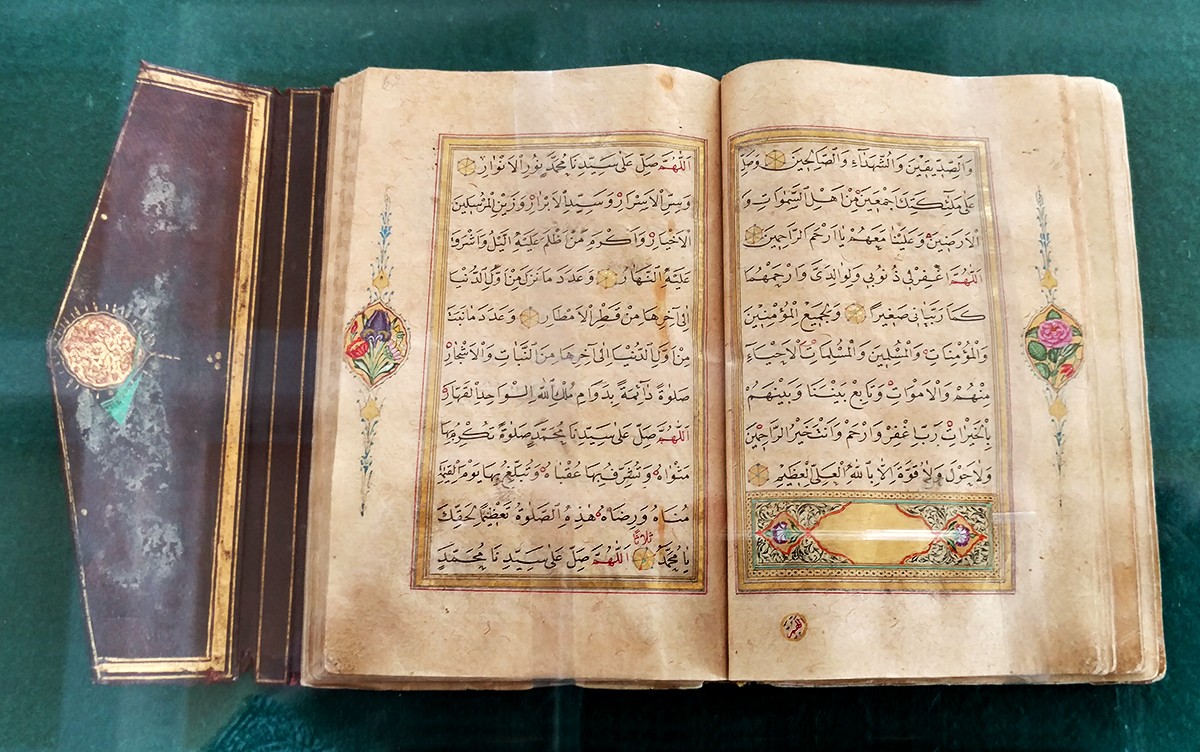 وَالصِّدِّيقِينَ وَالشُّهَدَاءِ وَالصَّالِحِينَ وَصَلِّ
عَلَى مَلٰئِكَتِكَ اَجْمَعِينَ مِنْ اَهْلِ السَّمٰوَاتِ وَ
الْاَرَضِينَ وَعَلَيْنَا مَعَهُمْ يَا اَرْحَمَ الرَّاحِمِينَ
اَللّٰهُمَّ اغْفِرْلِى ذُنُوبِى وَلِوَالِدَىَّ وَارْحَمْهُمَا
كَمَا رَبَّيَانِى صَغِيرًا وَلِجَمِيعِ الْمُؤْمِنِينَ
وَالْمُؤْمِنَاتِ وَالْمُسْلِمِينَ وَالْمُسْلِمَاتِ الْاَحْيَاءِ
مِنْهُمْ وَالْاَمْوَاتِ وَتَابِعْ بَيْنَنَا وَبَيْنَهُمْ
بِالْخَيْرَاتِ رَبِّ اغْفِرْ وَارْحَمْ وَاَنْتَ خَيْرُ الرَّاحِمِينَ
وَلَا حَوْلَ وَلَا قُوَّةَ اِلَّا بِاللّٰهِ الْعَلِىِّ الْعَظِيمِ
اَللّٰهُمَّ صَلِّ عَلَى سَيِّدِنَا مُحَمَّدٍ نُورِ الْاَنْوَارِ
وَسِرِّ الْاَسْرَارِ وَسَيِّدِ الْاَبْرَارِ وَزَيْنِ الْمُرْسَلِينَ
الْاَخْيَارِ وَاَكْرَمِ مَنْ اَظْلَمَ عَلَيْهِ الَّيْلُ وَاَشْرَقَ
عَلَيْهِ النَّهَارُ وَعَدَدَ مَا نَزَلَ مِنْ اَوَّلِ الدُّنْيَا
اِلَى آخِرِهَا مِنْ قَطْرِ الْاَمْطَارِ وَعَدَدَ مَا نَبَتَ
مِنْ اَوَّلِ الدُّنْيَا اِلَى آخِرِهَا مِنَ النَّبَاتِ وَالْاَشْجَارِ
صَلٰوةً دَائِمَةً بِدَوَامِ مُلْكِ اللّٰهِ الْوَاحِدِ الْقَهَّارِ
اَللّٰهُمَّ صَلِّ عَلَى سَيِّدِنَا مُحَمَّدٍ صَلٰوةً تُكْرِمُ بِهَا
مَثْوَاهُ وَتُشَرِّفُ بِهَا عُقْبَاهُ وَتُبَلِّغُ بِهَا يَوْمَ الْقِيٰمَةِ
مُنَاهُ وَرِضَاهُ هٰذِهِ الصَّلٰوةُ تَعْظِيمًا لِحَقِّكَ
ثلاثا
يَا مُحَمَّدُ اَللّٰهُمَّ صَلِّ عَلَى سَيِّدِنَا مُحَمَّدٍ